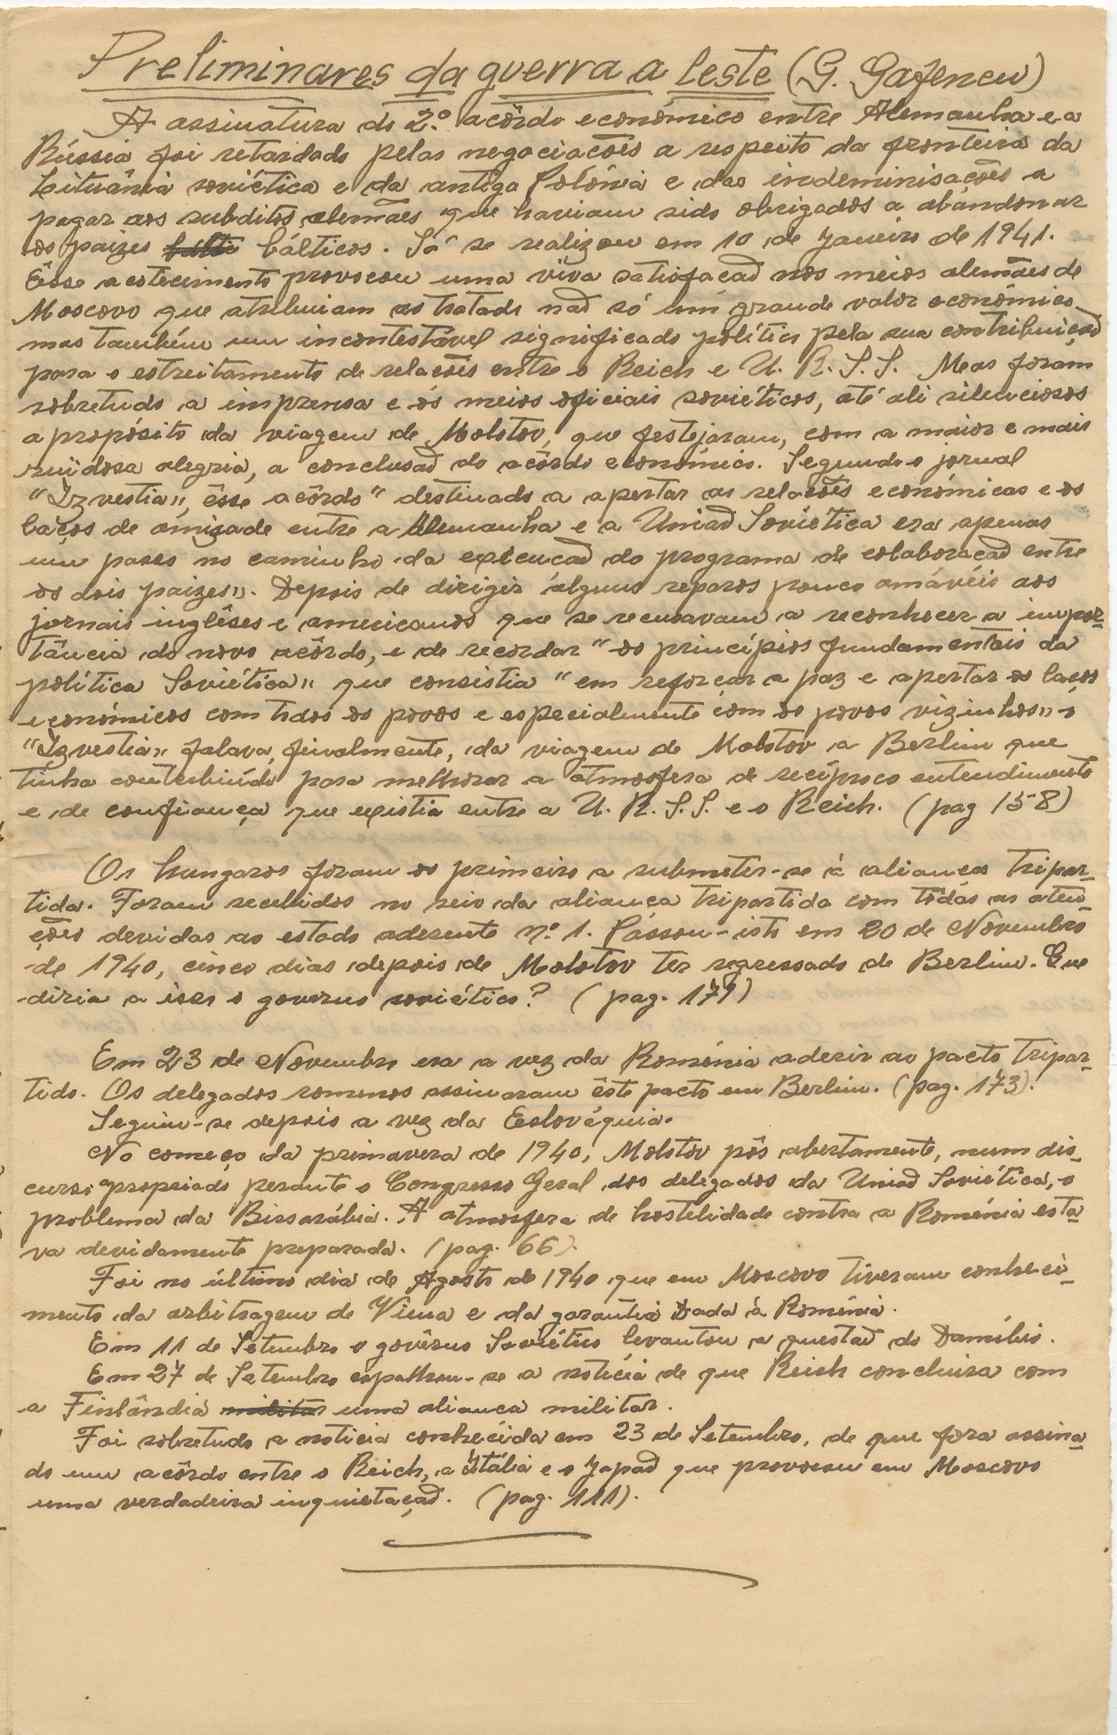 Preliminares da guerra a leste (G. Gafencu)
A assinatura do 2.º acôrdo económico entre Alemanha e a
Rússia foi retardado pelas negociações a respeito da fronteira da
Lituânia soviética e da antiga Polónia e das indemnisações a
pagar aos subditos alemães que haviam sido obrigados a abandonar
os paizes balticos. Só se realizou em 10 de Janeiro de 1941.
Êsse acontecimento provocou uma viva satisfação nos meios alemães de
Moscovo que atribuiam ao tratado não só um grande valor económico
mas também um incontestável significado politico pela sua contribuição
para o estreitamento de relações entre o Reich e U. R. S. S. Mas foram
sobretudo a imprensa e os meios oficiais soviéticos, até ali silenciosos
a propósito da viagem de Molotov, que festejaram, com a maior e mais
ruïdosa alegria, a conclusão do acôrdo económico. Segundo o jornal
"Izvestia", êsse acôrdo "destinado a apertar as relações económicas e os
laços de amizade entre a Alemanha e a União Soviética era apenas
um passo no caminho da execução do programa de colaboração entre
os dois paizes". Depois de dirigir alguns reparos pouco amáveis aos
jornais inglêses e americanos que se recusavam a reconhecer a impor-
tância do novo acôrdo, e de recordar "os princípios fundamentais da
política Soviética" que consistia "em reforçar a paz e apertar os laços
económicos com todos os povos e especialmente com os povos vizinhos" o
"Izvestia" falava, finalmente, da viagem de Molotov a Berlim que
tinha contribuído para melhorar a atmosfera de recíproco entendimento
e de confiança que existia entre a U. R. S. S. e o Reich. (pag 158)
Os hungaros foram os primeiros a submeter-se á aliança tripar-
tida. Foram recebidos no seio da aliança tripartida com tôdas as aten-
ções devidas ao estado aderente n.º 1. Passou-isto em 20 de Novembro
de 1940, cinco dias depois de Molotov ter regressado de Berlim. Que
diria a isso o governo soviético? (pag. 171)
Em 23 de Novembro era a vez da Roménia aderir ao pacto tripar-
tido. Os delegados romenos assinaram êste pacto em Berlim. (pag. 173).
Seguiu-se depois a vez da Eslováquia.
No começo da primavera de 1940, Molotov pôs abertamente, num dis-
curso apropriado perante o Congresso Geral dos delegados da União Soviética, o
problema da Bissarábia. A atmosfera de hostilidade contra a Roménia esta-
va devidamente preparada. (pag. 66).
Foi no último dia de Agosto de 1940 que em Moscovo tiveram conheci-
mento da arbitragem de Viena e da garantia dada á Roménia.
Em 11 de Setembro o govêrno Soviético levantou a questão do Danúbio.
Em 27 de Setembro espalhou-se a notícia de que Reich concluira com
a Finlândia militar uma aliança militar.
Foi sobretudo a noticia conhecida em 23 de Setembro, de que fora assina-
do um acôrdo entre o Reich, a Itália e o Japão que provocou em Moscovo
uma verdadeira inquietação. (pag. 111).